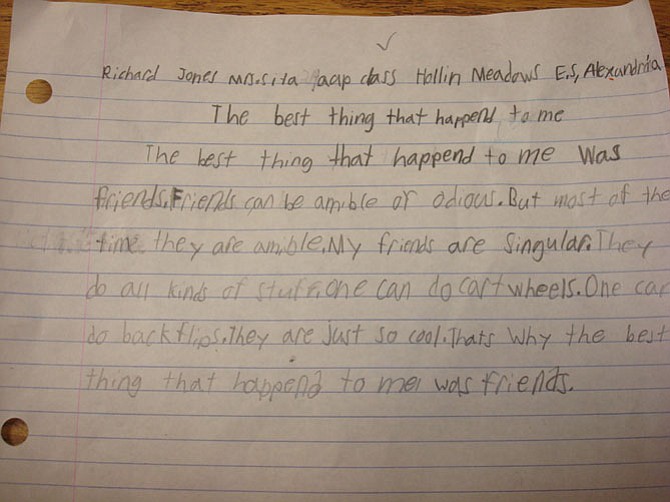 Richard Jones Mrs.sita aap class Hollin Meadows E.S, Alexandria
The best thing that happend to me
The best thing that happend to me was
friends.Friends can be amible or odious.But most of the
time they are amible.My friends are singular.They
do all kinds of stuff.One can do cartwheels.One can
do backflips.They are just so cool.Thats why the best
thing that happend to me was friends.